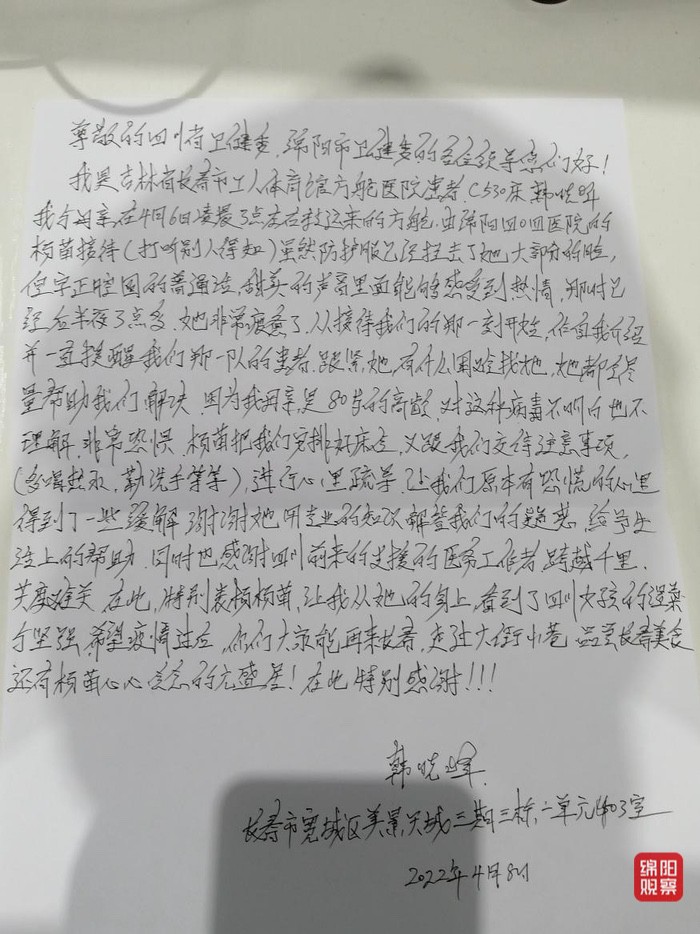 尊敬的四川省卫健委,绵阳市卫健委的各位领导您们好!
我是吉林省长春市工人体育馆方舱医院患者,C530床韩晓峰
我与母亲在4月6日凌晨3点左右转运来的方舱.由绵阳四0四医院的
杨苗接待(打听别人得知)虽然防护服已经挡去了她大部分的脸,
但字正腔圆的普通话,甜美的声音里面能够感受到热情,那时已
经后半夜3点多,她非常疲惫了,从接待我们的那一刻开始,作自我介绍
并一直提醒我们那一队的患者,跟紧她,有什么困难找她,她都会尽
量帮助我们解决 因为我母亲是80岁的高龄,对这种病毒不明白也不
理解,非常恐惧 杨苗把我们安排好床位,又跟我们交待注意事项,
(多喝热水,勤洗手等等),进行心里疏导.让我们原本有恐慌的心里
得到了一些缓解 谢谢她用专业的知识解答我们的疑惑,给予生
活上的帮助.同时也感谢四川前来的支援的医务工作者 跨越千里,
共度难关 在此,特别表扬杨苗,让我从她的身上,看到了四川女孩的温柔
与坚强 希望疫情过后,你们大家能再来长春,走过大街小巷 品尝长春美食
还有杨苗心心念念的元盛居!在此特别感谢!!!
韩晓峰
长春市宽城区美景天城三期三栋,二单元 室
2022年4月8日
绵阳
观察